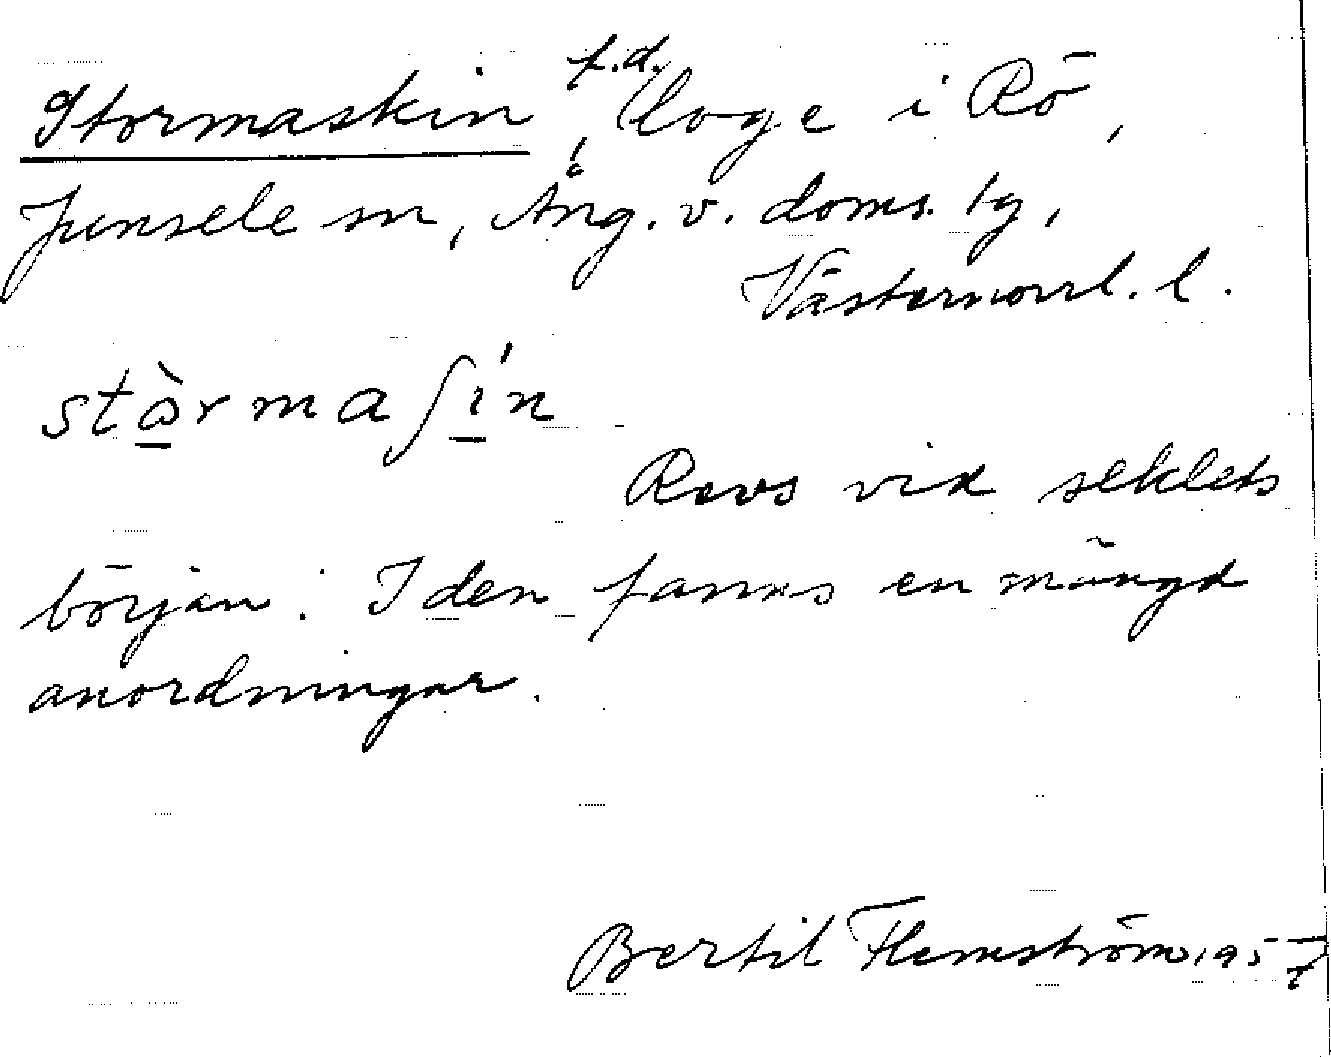 Stormaskin, f.d. loge i Rö,
Junsele sn, Ång. v. doms. lg,
Västernorrl. l.
stòrmaʃín
Revs vid seklets
början. I den fanns en mängd
anordningar.
Bertil Flemström 1957